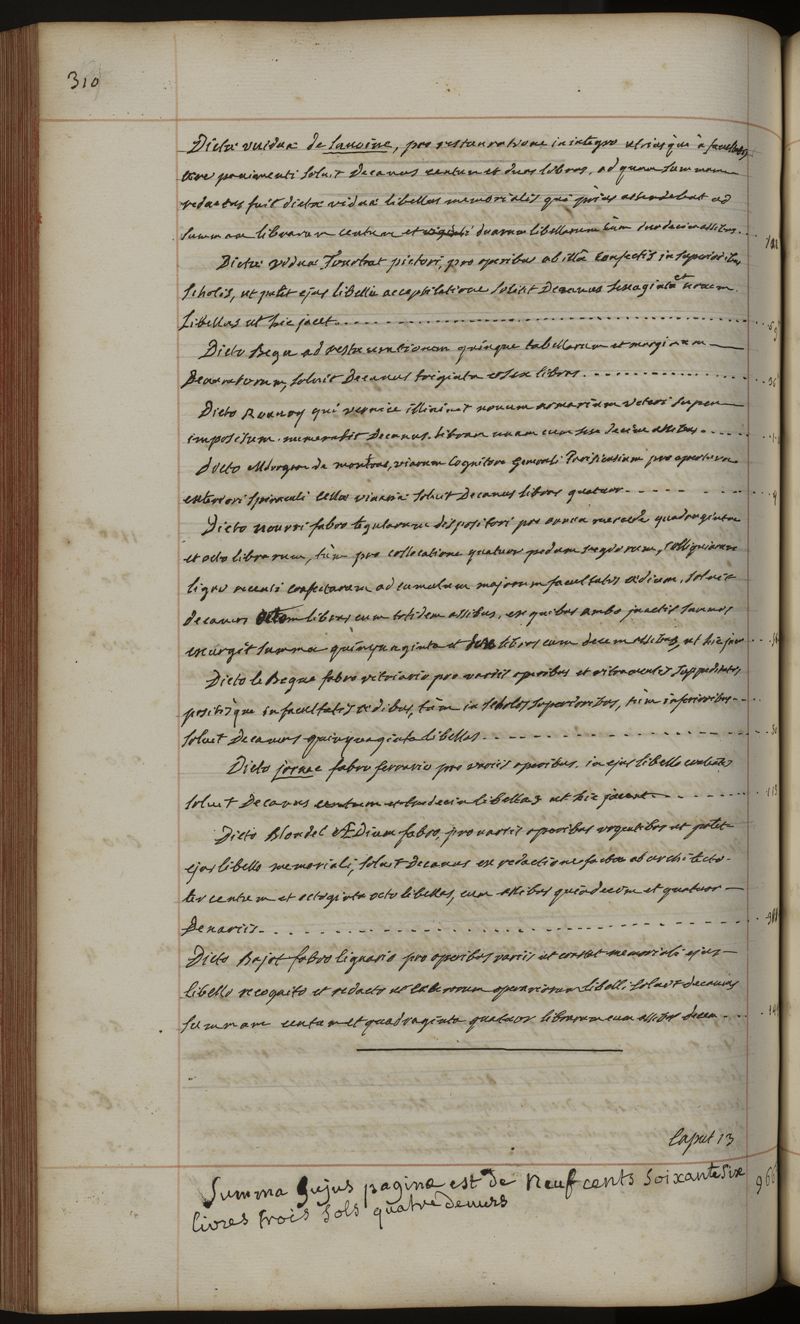 310
Dictæ viduæ de Lavoine, pro restauratione in integro utriusque à facultatis
pavimenti soluit Decanus centum et duas libras, ad quam summam
redactus fuit dictæ viduæ libellus memorialis qui prius ascendebat ad
summam librarum centum et viginti duarum libellarum cùm duodecim assibus.. 102
Dictæ viduæ Tourbat pictori, pro operibus ab illâ confectis in superioribus
scholis, ut patet ejus libelli acceptilatione solvit Decanus sexaginta et novem
libellas ut hic jacet........ 69
Dicto Begu ad restaurationem quinque tabellarum et marginum
Deauratorum, soluit Decanus triginta et sex libras........ 36
Dicto Rounoy qui vernice illinivit novum armarium veteri super
impositum numeravit Decanus libram unam cum sex decim assibus.....
Dicto viarum Cognitori Generali Parisiensium pro apertura
exteriori spiraculi cellæ vinariæ soluit Decanus libras quatuor...... 4
Dicto nourri fabro tegularum dispositori pro annua mercede quadraginta
et octo librarum, tùm pro collocatione quatuor pedum tegularum,
ligno recenti confectarum ad cumulum majorum facultatis ædium, soluit
decanus octo libras cum totidem assibus, ex quibus ambo junctis summis
exurgit summa quinquaginta et sex libras cum decem assibus, ut hic jacet... 56
Dicto le Begue fabro vitriario pro variis operibus et vitramentis suppeditatis,
positisque in facultatis ædibus, tùm in scholis superioribus, tùm inferioribus...
soluit Decanus quinquaginta libellas........ 50
Dicto jorrae fabro ferrario pro variis operibus in ejus libello contentis
soluit Decanus centum et tredecim libellas ut hic jacent....... 113
Dicto Blondel Ædium fabro, pro variis operibus urgentibus ut patet
ejus libello memoriali, soluit Decanus ex redactione facta ab architecto
ter centum et octoginta octo libellas, cum assibus quindecim et quatuor
Denariis........
Dicto Bajot fabro lignario pro operibus variis ut constat memoriali ejus
libello recognito et redacto ut cæterorum operariorum libelli soluit decanus
summam centum et quadraginta quatuor librarum cum assibus decem.... 144
Caput 13
Summa hujus paginæ est de Neuf cents soixante six 966
livres trois sols quatre deniers